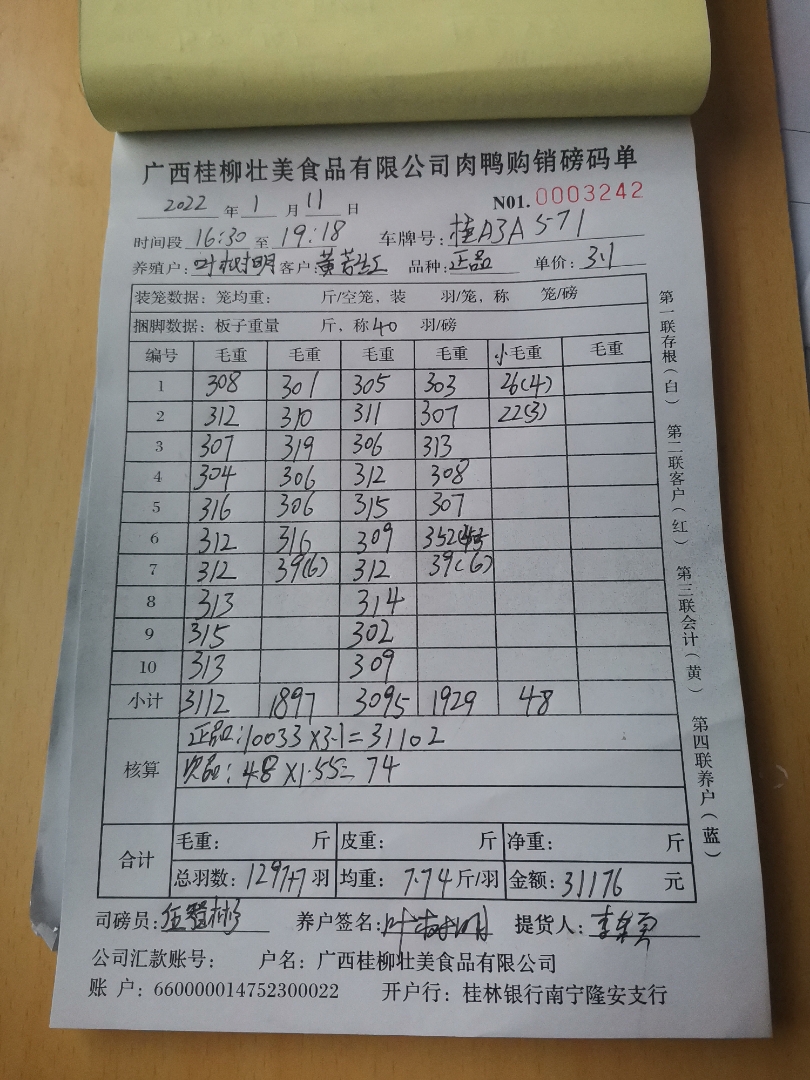 广西桂柳壮美食品有限公司肉鸭购销磅码单
2022 年 1 月 11 日 N01. 0003242
时间段 16:30 至 19:18 车牌号: 桂A3A571
养殖户: 叶树明 客户: 品种: 正品 单价: 3.1
装笼数据: 笼均重: 斤/空笼, 装 羽/笼, 称 笼/磅
捆脚数据: 板子重量 斤, 称 40 羽/磅
编号 毛重 毛重 毛重 毛重 小毛重 毛重
1 308 301 305 303 26(4)
2 312 310 311 307 22(3)
3 307 319 306 313
4 304 306 312 308
5 316 306 315 307
6 312 316 309 352
7 312 39(6) 312 39(6)
8 313 314
9 315 302
10 313 309
小计 3112 1897 3095 1929 48
核算 正品:10033×3.1=31102
次品:48×1.55=74
合计 毛重: 斤 皮重: 斤 净重: 斤
总羽数: 1297+7 羽 均重: 7.74 斤/羽 金额: 31176 元
司磅员: 养户签名: 叶树明 提货人:
公司汇款账号: 户名: 广西桂柳壮美食品有限公司
账 户: 660000014752300022 开户行: 桂林银行南宁隆安支行
第一联存根(白) 第二联客户(红) 第三联会计(黄) 第四联养户(蓝)